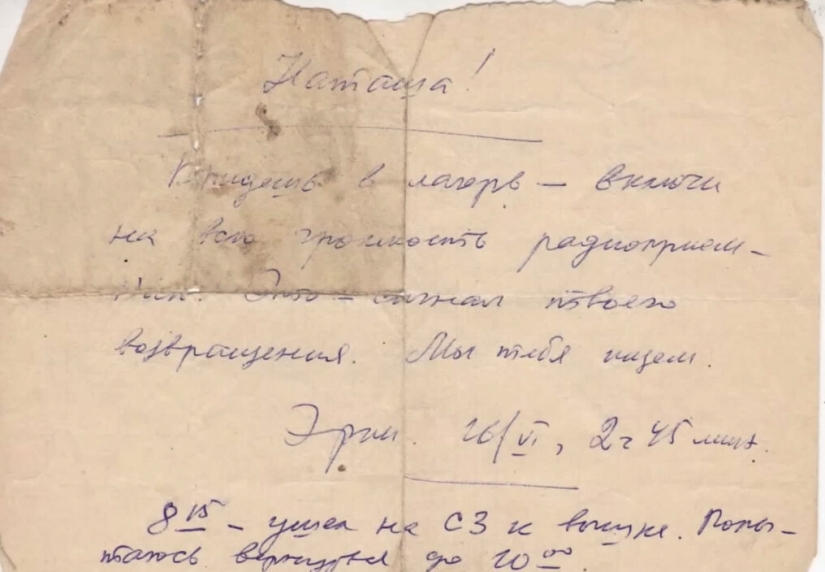 Наташа!
Придешь в лагерь — включи
на всю громкость радиоприем-
ник. Это — сигнал твоего
возвращения. Мы тебя ищем.
Эрик. 26/VI, 2ч 45 мин.
8 15 – ушел на СЗ к вышке. Попы-
таюсь вернуться до 10 00.